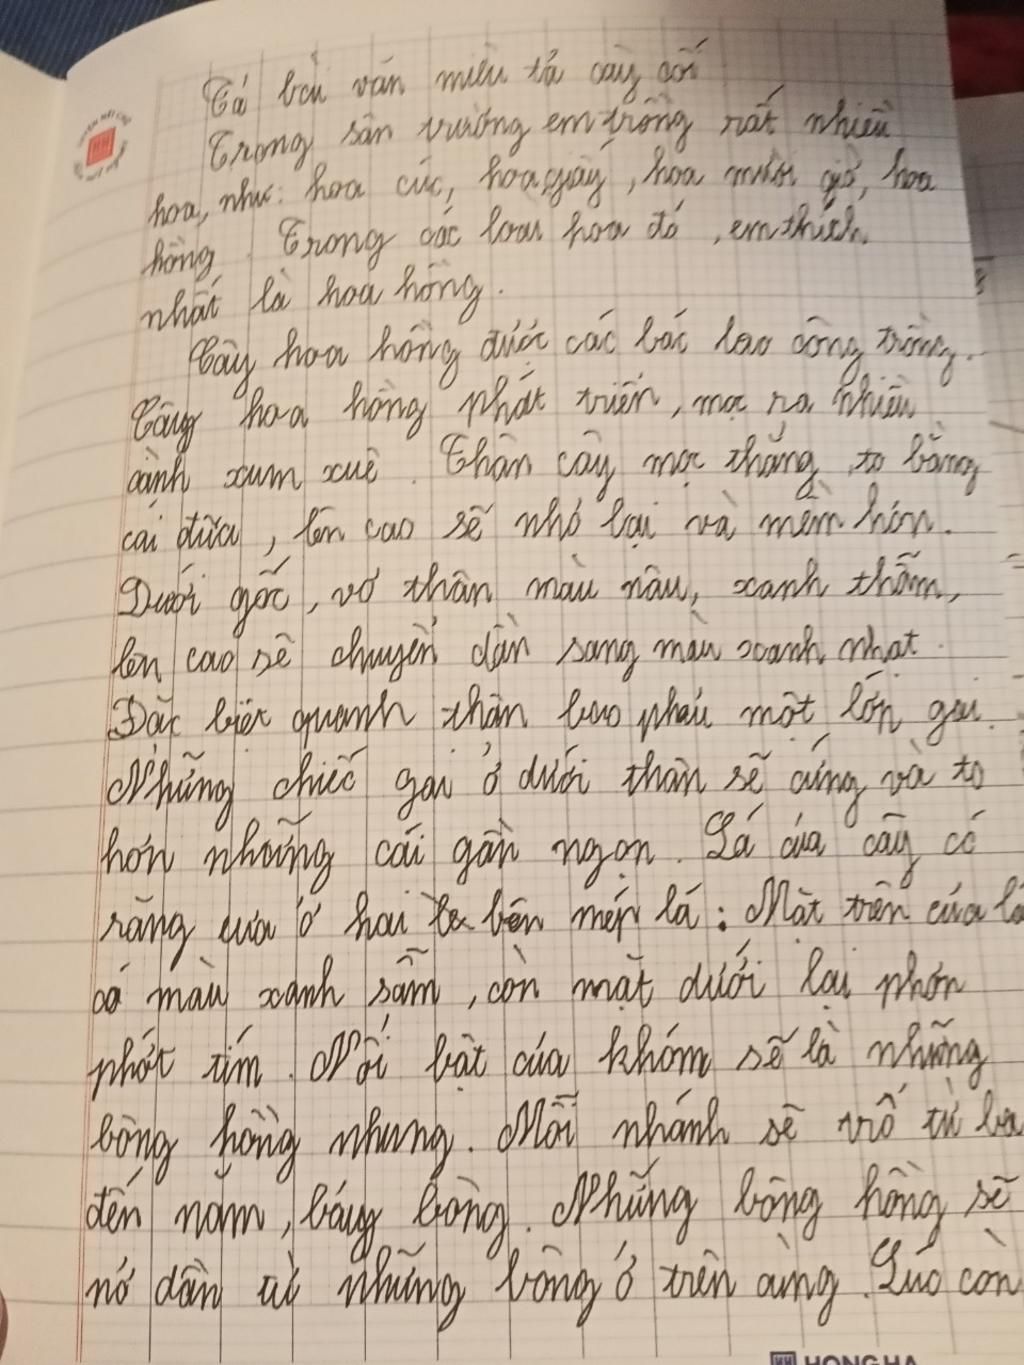 Tả bài văn miêu tả cây cối
Trong sân trường em trồng rất nhiều
hoa, như: hoa cúc, hoa giấy, hoa mười giờ, hoa
hồng. Trong các loài hoa đó, em thích
nhất là hoa hồng.
Cây hoa hồng được các bác lao công trồng.
Cây hoa hồng phát triển, mọc ra nhiều
cành xum xuê. Thân cây mọc thẳng, to bằng
cái đũa, lên cao sẽ nhỏ lại và mềm hơn.
Dưới gốc, vỏ thân màu nâu, xanh thẫm,
lên cao sẽ chuyển dần sang màu xanh nhạt.
Đặc biệt quanh thân bao phủ một lớp gai.
Những chiếc gai ở dưới thân sẽ cứng và to
hơn những cái gần ngọn. Lá của cây có
răng cưa ở hai bên mép lá. Mặt trên của lá
có màu xanh sẫm, còn mặt dưới lại phơn
phớt tím. Nổi bật của khóm sẽ là những
bông hồng nhung. Mỗi nhánh sẽ trổ từ ba
đến năm, bảy bông. Những bông hồng sẽ
nở dần từ những bông ở trên cùng. Lúc còn
HONG HA